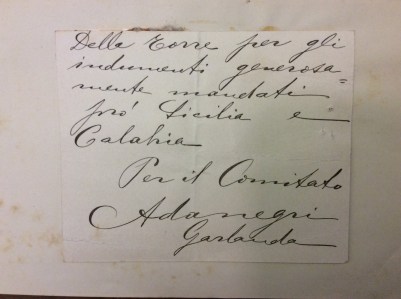 Della Torre per gli
indumenti generosa=
mente mandati
pro' Sicilia e
Calabria
Per il Comitato
Ada negri
Garlanda